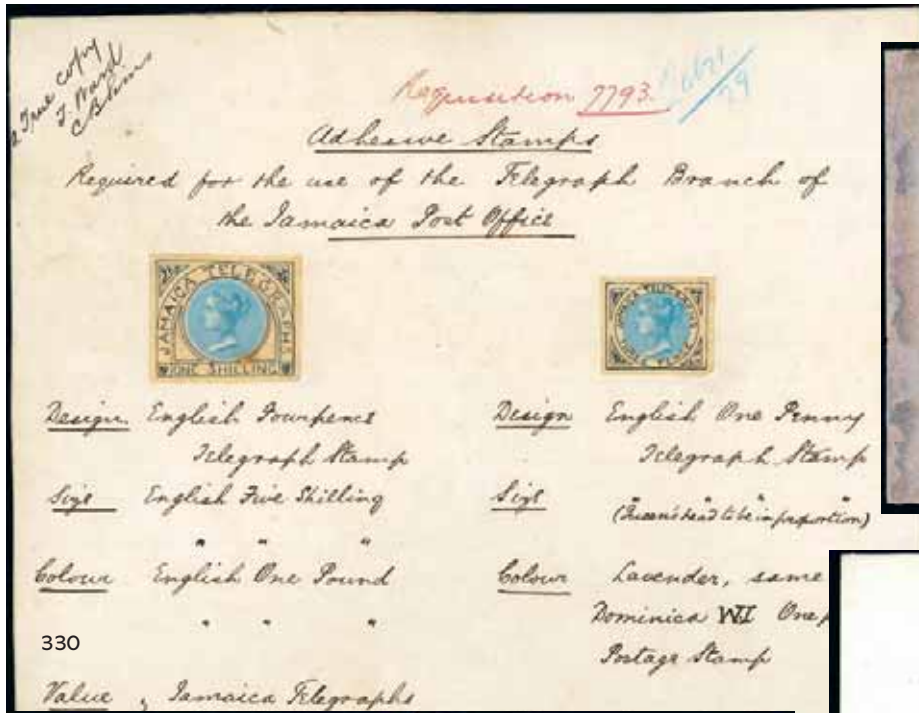 a True copy
J. Ward
Requisition 7793.
Adhesive Stamps
Required for the use of the Telegraph Branch of
the Jamaica Post Office
JAMAICA TELEGRAPHS
ONE SHILLING
JAMAICA TELEGRAPHS
PENCE
Design English Fourpence
Telegraph Stamp
Size English Five Shilling
" " "
Colour English One Pound
" " "
Value , Jamaica Telegraphs
Design English One Penny
Telegraph Stamp
Size " " "
(Queen's head to be in proportion)
Colour Lavender, same
Dominica WI One
Postage Stamp
330